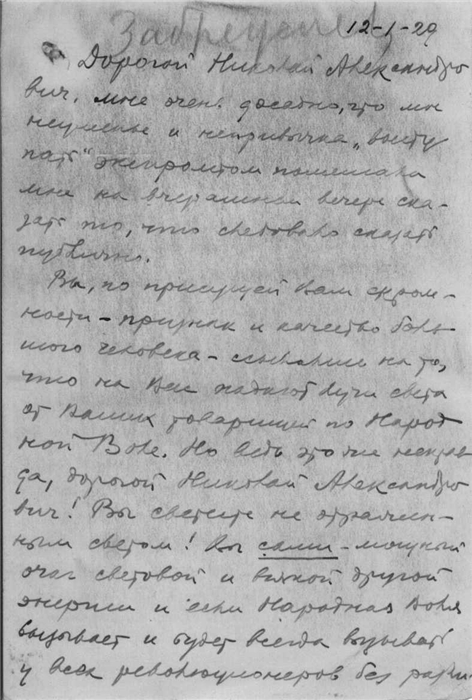 12-1-29
Дорогой Николай Александро
вич, мне очень досадно, что мое
неуменье и непривычка „высту
пать" экспромтом помешала
мне на вчерашнем вечере ска-
зать то, что следовало сказать
публично.
Вы, по присущей Вам скром-
ности – признак и качество боль
шого человека – на то,
что на Вас падают лучи света
от Ваших товарищей по Народ
ной Воле. Но ведь это же неправ
да, дорогой Николай Александро
вич! Вы светите не отражен-
ным светом! Вы сами – мощный
очаг световой и всякой другой
энергии и если Народная Воля
вызывает и будет всегда вызывать
у всех революционеров без